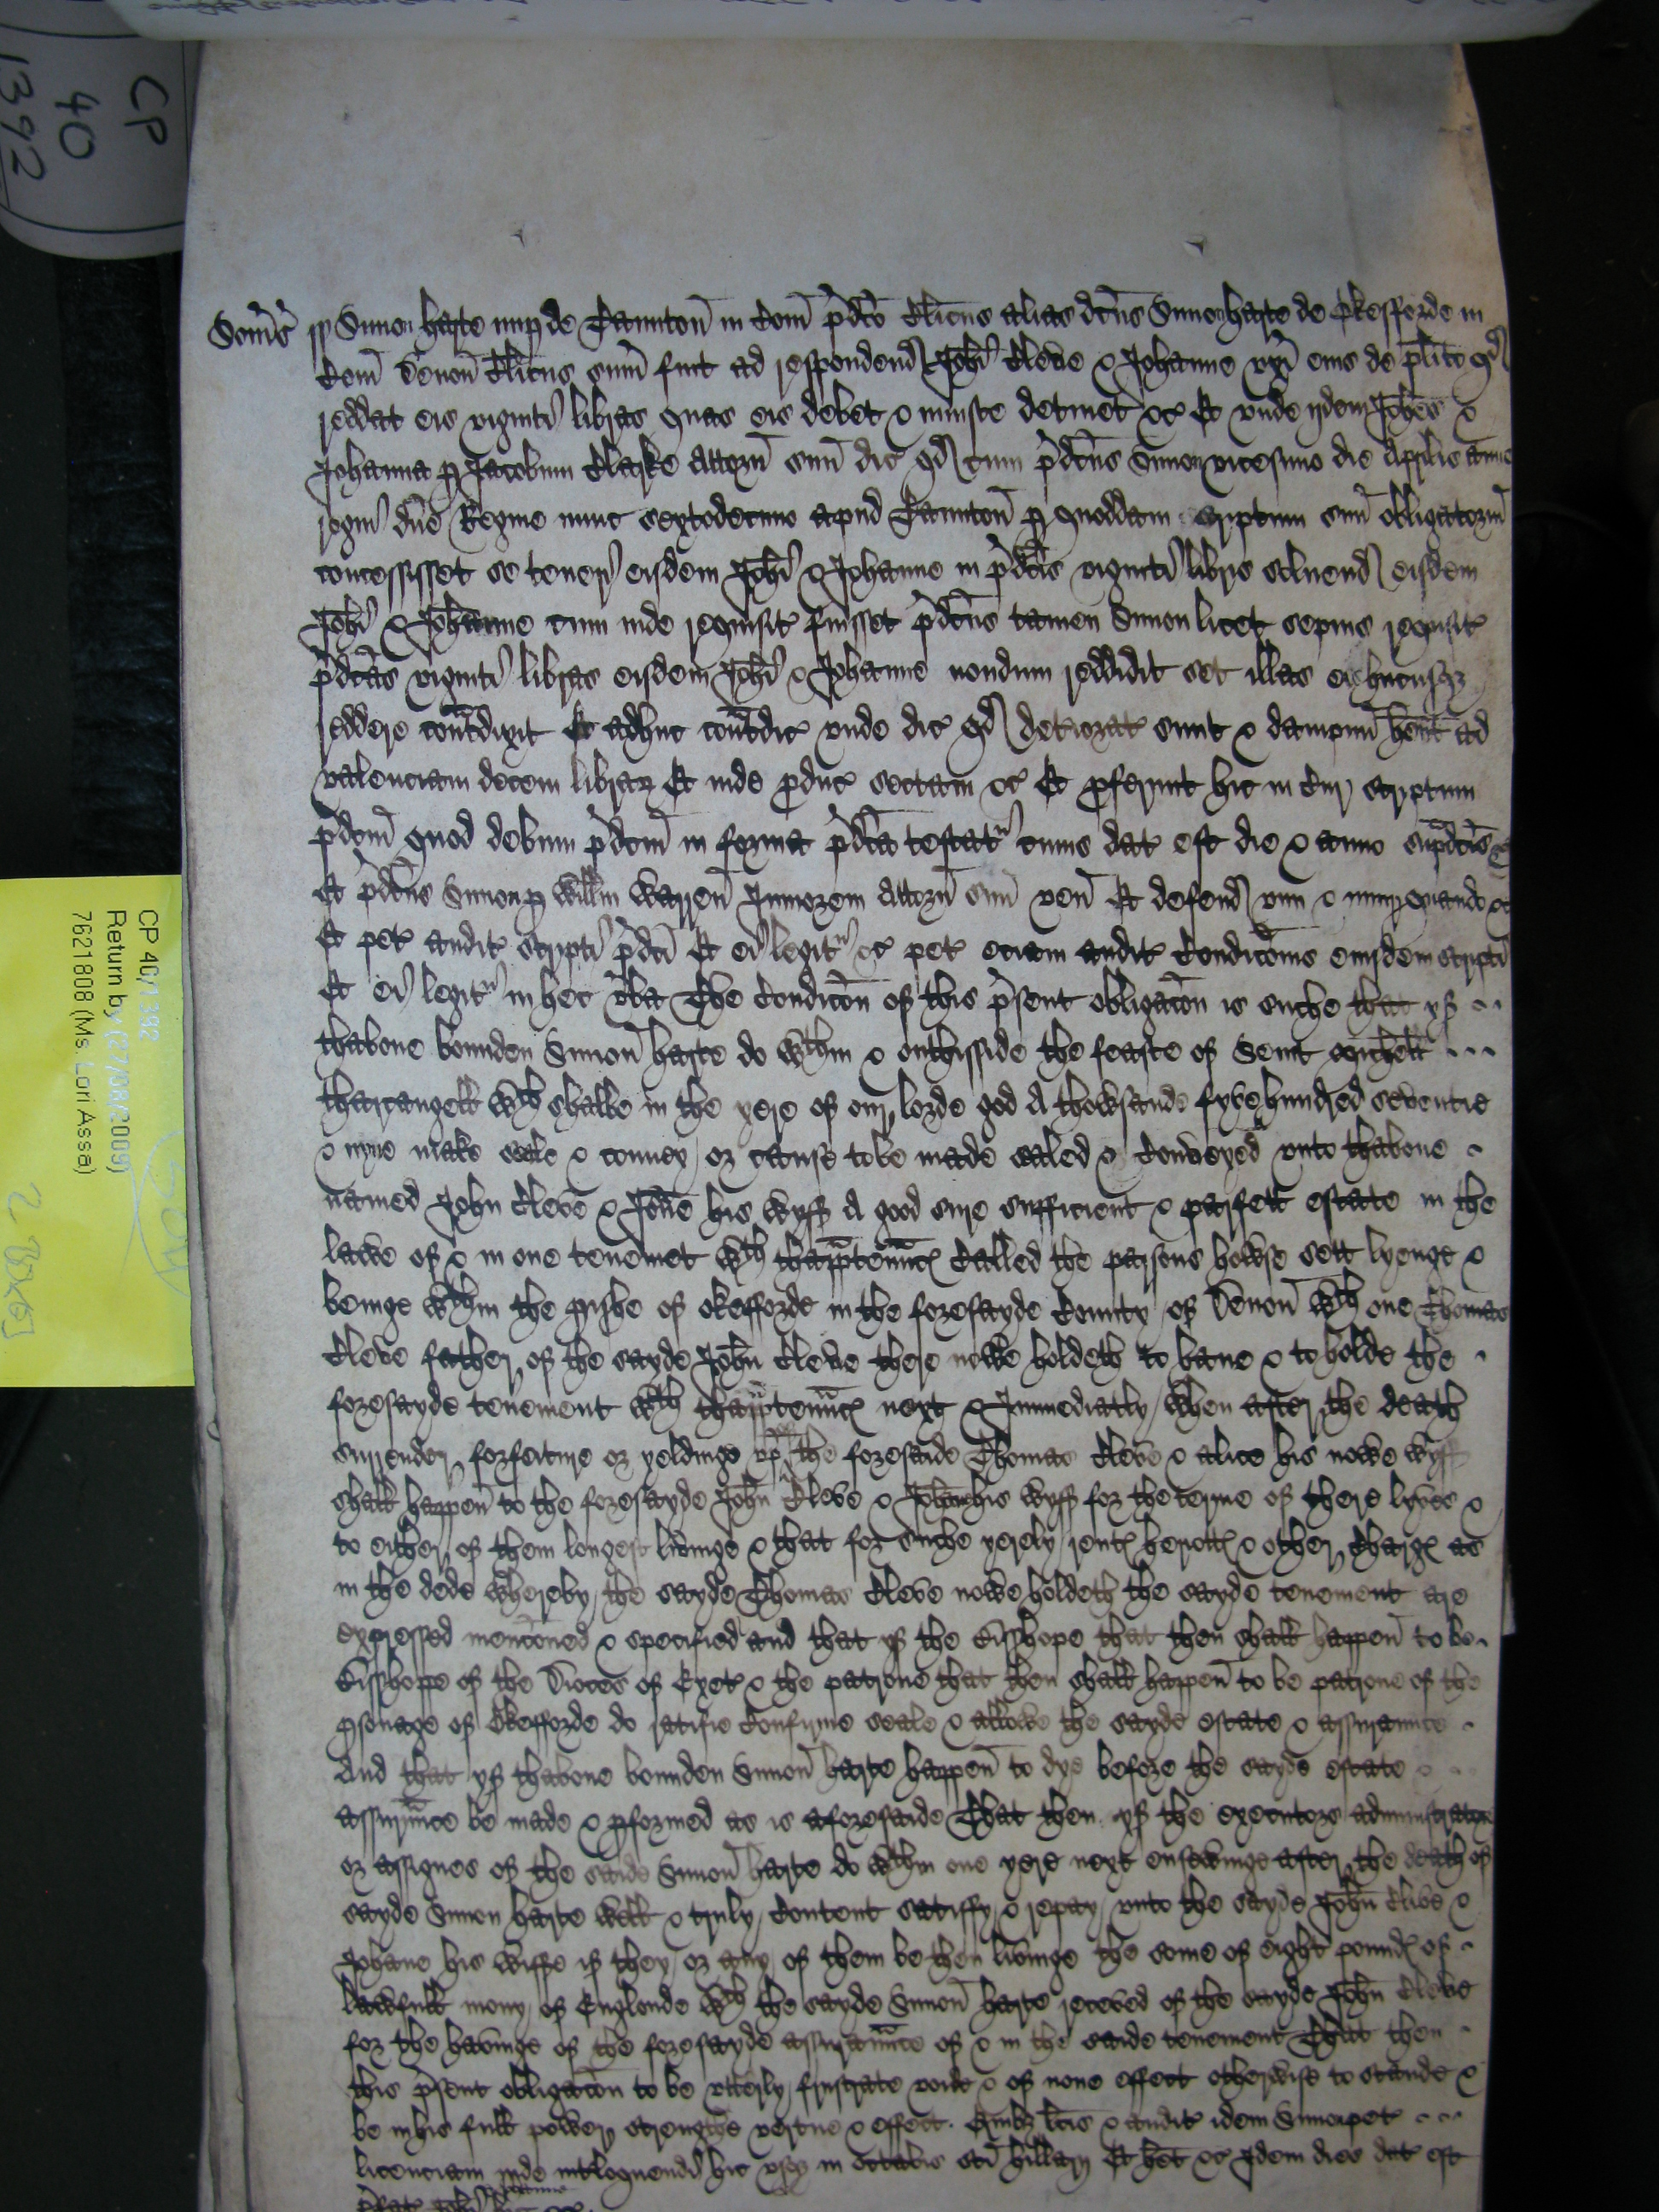 CP
40
1392
CP 40/1392
Return by (27/08/2009)
7621808 (Ms. Lori Assa)
Som̃s ss Simon harte nup de Taunton̄ in Com̄ p̄dc̄o Cl̄icus alias dc̄us Simon harte de Okefforde in
Com̄ Devon̄ Cl̄icus sum̄ fuit ad respondend Joh̄i Cleve & Johanne ux̄i eius de pl̄ito qd
reddat eis viginti libras quas eis debet & iniuste detinet &c Et unde ijdem Joh̄es &
Johanna p Jacobum Clarke Attorn̄ suū dic̄ qd cum p̄dc̄us Simon vicesimo die Aprilis anno
regni dn̄e Regine nunc sextodecimo apud Taunton̄ p quoddam scriptum suū obligatoriū
concessisset se teneri eisdem Joh̄i & Johanne in p̄dc̄is viginti libris solvend eisdem
Joh̄i & Joh̄anne cum inde requisit̄ fuisset p̄dc̄us tamen Simon licet sepius requisit̄
p̄dc̄as viginti libras eisdem Joh̄i & Johanne nondum reddidit set illas eis hucusqz
reddere cont̄dixit Et adhuc cont̄dic̄ unde dic̄ qd deteriorat̄ sunt & dampnū hent ad
valenciam decem librar̄ Et inde p̄duc̄ sectam &c Et p̄ferunt hic in Cur̄ scriptum
p̄dc̄m̄ quod debitum p̄dc̄m̄ in forma p̄dc̄a testat̄ cuius dat̄ est die & anno sup̄dc̄is &c
Et p̄dc̄us Simon p Willm̄ Warren̄ Juniorem Attorn̄ suū ven̄ Et defend vim & iniur̄ quando &c
Et pet̄ audit̄ scripti p̄dc̄i Et ei legit̄ &c pet̄ eciam audit̄ Condic̄onis eiusdem scripti
Et ei legit̄ in hec v̄ba The Condic̄on of this p̄sent obligac̄on is suche that yf
thabove bounden Simon̄ harte do wthin & onthisside the feaste of Seint Michell
tharcangell wch shalbe in the yere of our lorde god A thowsande fyve hundred seventie
& nyne make seale & convey or cause to be made sealed & Conveyed unto thabove
named John Cleve & Jon̄e his wyff A good sure sufficient & parfett estate in the
lawe of & in one tenemet wth thapp̄ten̄nc̄ Called the parsons howse sett lyenge &
beinge wthin the prishe of okefforde in the foresayde County of Devon̄ wch one Thomas
Cleve father of the sayde Joh̄n Cleve there nowe holdeth to have & to holde the
foresayde tenement wth thapp̄ten̄nc̄ next & Immediatly when after the death
surrender forfeiture or yeldinge up of the foresaide Thomas Cleve & alice his nowe wyff
shall happen̄ to the foresayde Joh̄n Cleve & Johane his wyff for the terme of there lyves &
to either of them longest livinge & that for suche yerely rent̄ heriott̄ & other Charḡ as
in the dede whereby the sayde Thomas Cleve nowe holdeth the sayde tenement are
expressed menc̄oned & specified and that yf the Bisshope that then shall happen̄ to be
Bisshoppe of the Dioces of Exet̄ & the patrone that then shall happen̄ to be patrone of the
psonage of Okefforde do ratifie Confirme seale & allowe the sayde estate & assurance
And that yf thabove bounden Simon̄ harte happen̄ to dye before the sayde estate &
assur̄nce be made & pformed as is aforesaide That then yf the executors administrators
or assignes of the saide Simon̄ harte do wthin one yere next ensewinge after the death of
sayde Simon harte well & truly Content satisfy & repay unto the sayde Joh̄n Clive &
Johane his wiffe if they or any of them be then livinge the some of eight pound̄ of
lawfull mony of Englonde wch the sayde Simon̄ harte receved of the sayde Joh̄n Cleve
for the havinge of the foresayde assuran̄ce of & in the saide tenement That then
this p̄sent obligac̄on to be utterly frustrate voide & of none effect otherwise to stande &
be in his full power strengthe vertue & effect. Quibz lc̄is & audit̄ idem Simon pet̄
licenciam inde int̄loquendi hic usqz in octabis sc̄i hillarij Et h̄et &c Idem dies dat̄ est
p̄fat̄ Joh̄i & Johanne hic &c